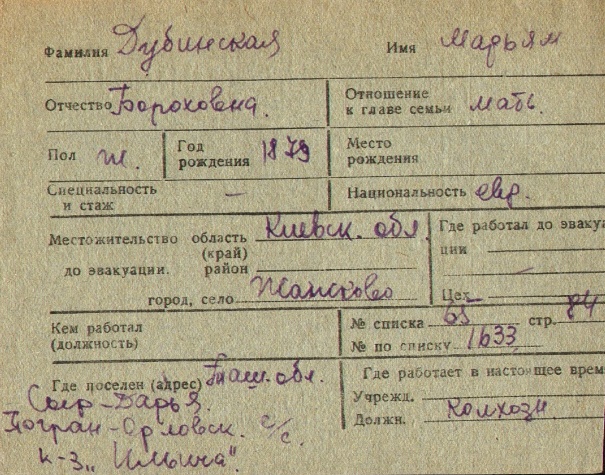 Фамилия Дубинская Имя Марьям
Отчество Бороховна. Отношение к главе семьи мать.
Пол ж. Год рождения 1879 Место рождения
Специальность и стаж — Национальность евр.
Местожительство область Киевск. обл. Где работал до эвакуа
(край) ции
до эвакуации. район —
город, село Жашково Цех
Кем работал № списка 65 стр. 84
(должность) № по списку 1633
Где поселен (адрес) Таш. обл. Где работает в настоящее врем
Сыр-Дарья Учрежд.
Погран-Орловск. с/с. Должн. колхозн.
к-з „Ильича".